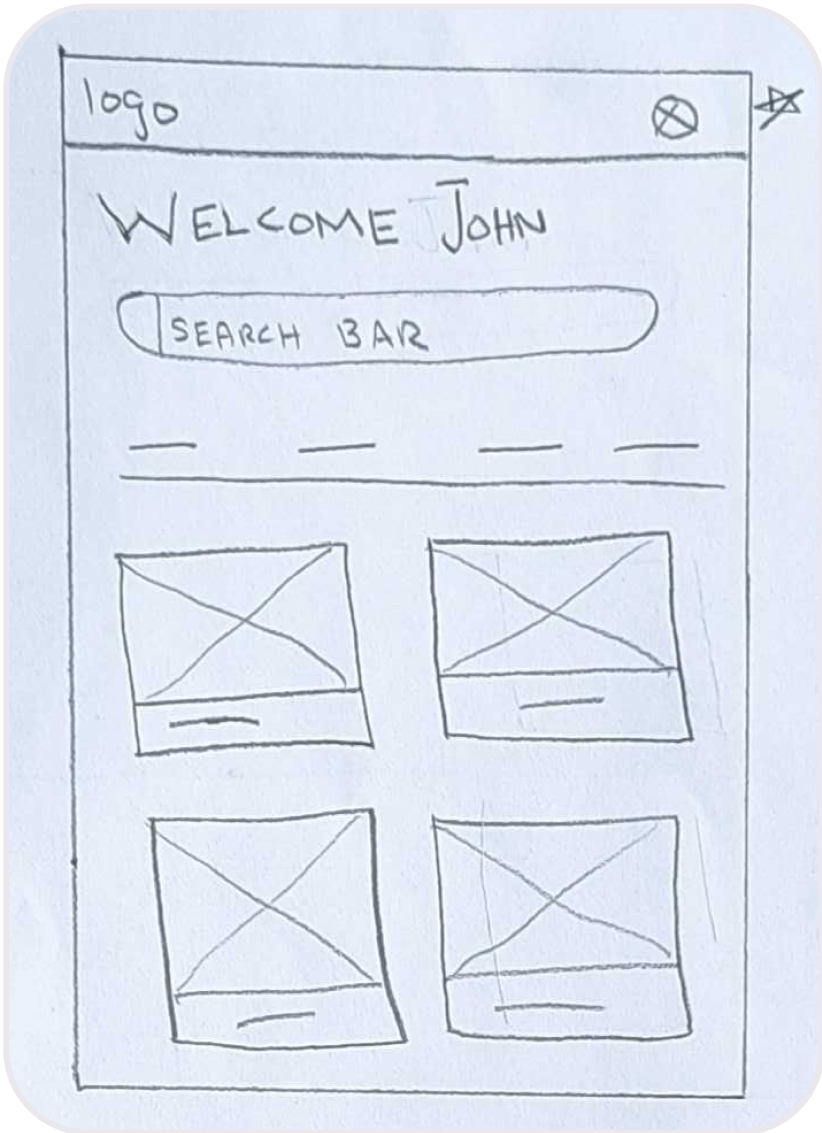 logo
WELCOME JOHN
SEARCH BAR